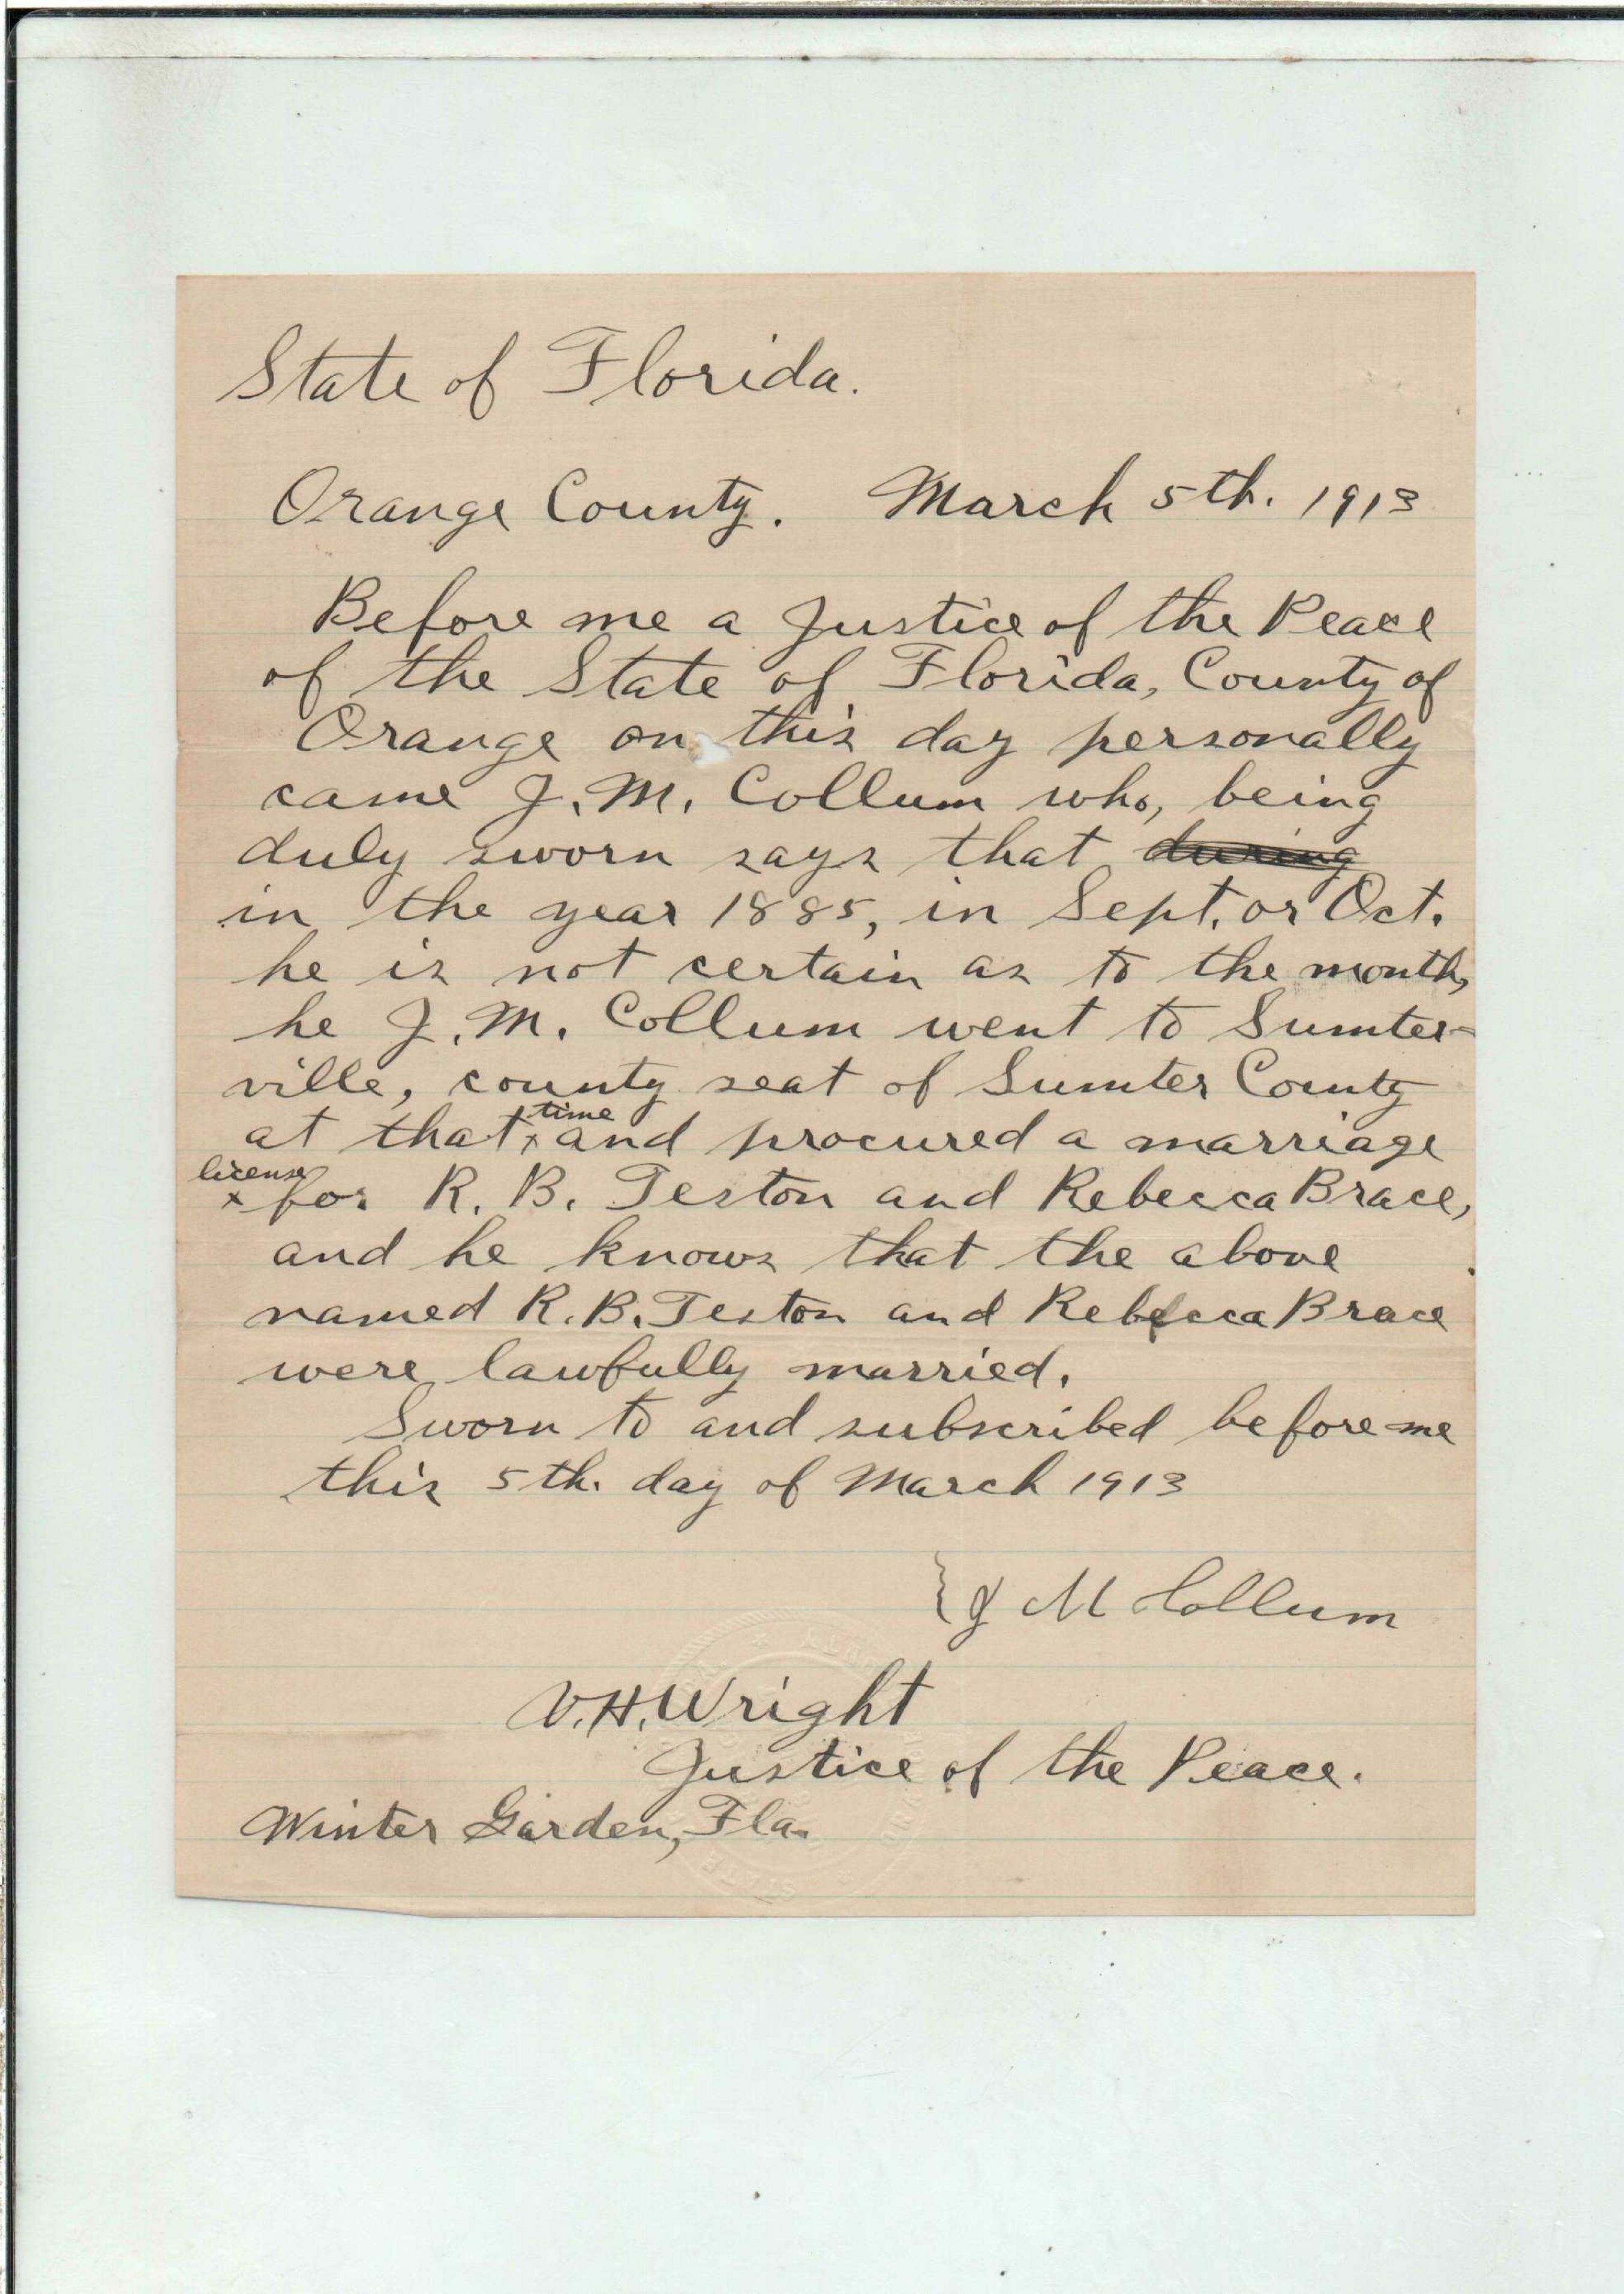 State of Florida.
Orange County. March 5th. 1913
Before me a Justice of the Peace
of the State of Florida, County of
Orange on this day personally
came J. M. Collum who, being
duly sworn says that during
in the year 1885, in Sept. or Oct.
he is not certain as to the month,
he J. M. Collum went to Sumter-
ville, county seat of Sumter County
at that x time and procured a marriage
x license for R. B. Teston and Rebecca Brace,
and he knows that the above
named R. B. Teston and Rebecca Brace
were lawfully married.
Sworn to and subscribed before me
this 5th. day of March 1913
} J M Collum
V. H. Wright
Justice of the Peace.
Winter Garden, Fla.